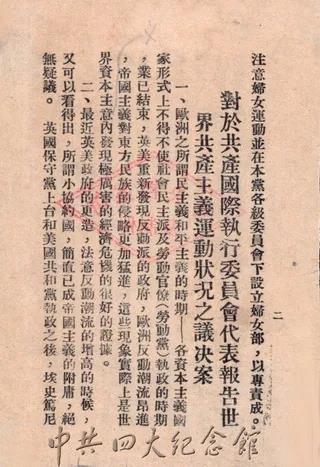 注意婦女運動並在本黨各級委員會下設立婦女部，以專責成。
對於共產國際執行委員會代表報告世
界共產主義運動狀況之議決案
一、歐洲之所謂民主義和平主義的時期——各資本主義國
家形式上不得不使社會民主派及勞動官僚（勞動黨）執政的時期
，業已結束，英美重新發現反動派的政府，歐洲反動潮流昂進
，帝國主義對東方民族的侵略更加猛進，這些現象實際上是世
界資本主義內發現極厲害的經濟危機的很好的證據。
二、最近英美政府的更造，法意反動潮流的增高的時候，
又可以看得出，所謂小協約國，簡直已成帝國主義的附庸，絕
無疑議。　英國保守黨上台和美國共和黨執政之後，埃史篤尼
二
中共四大紀念館